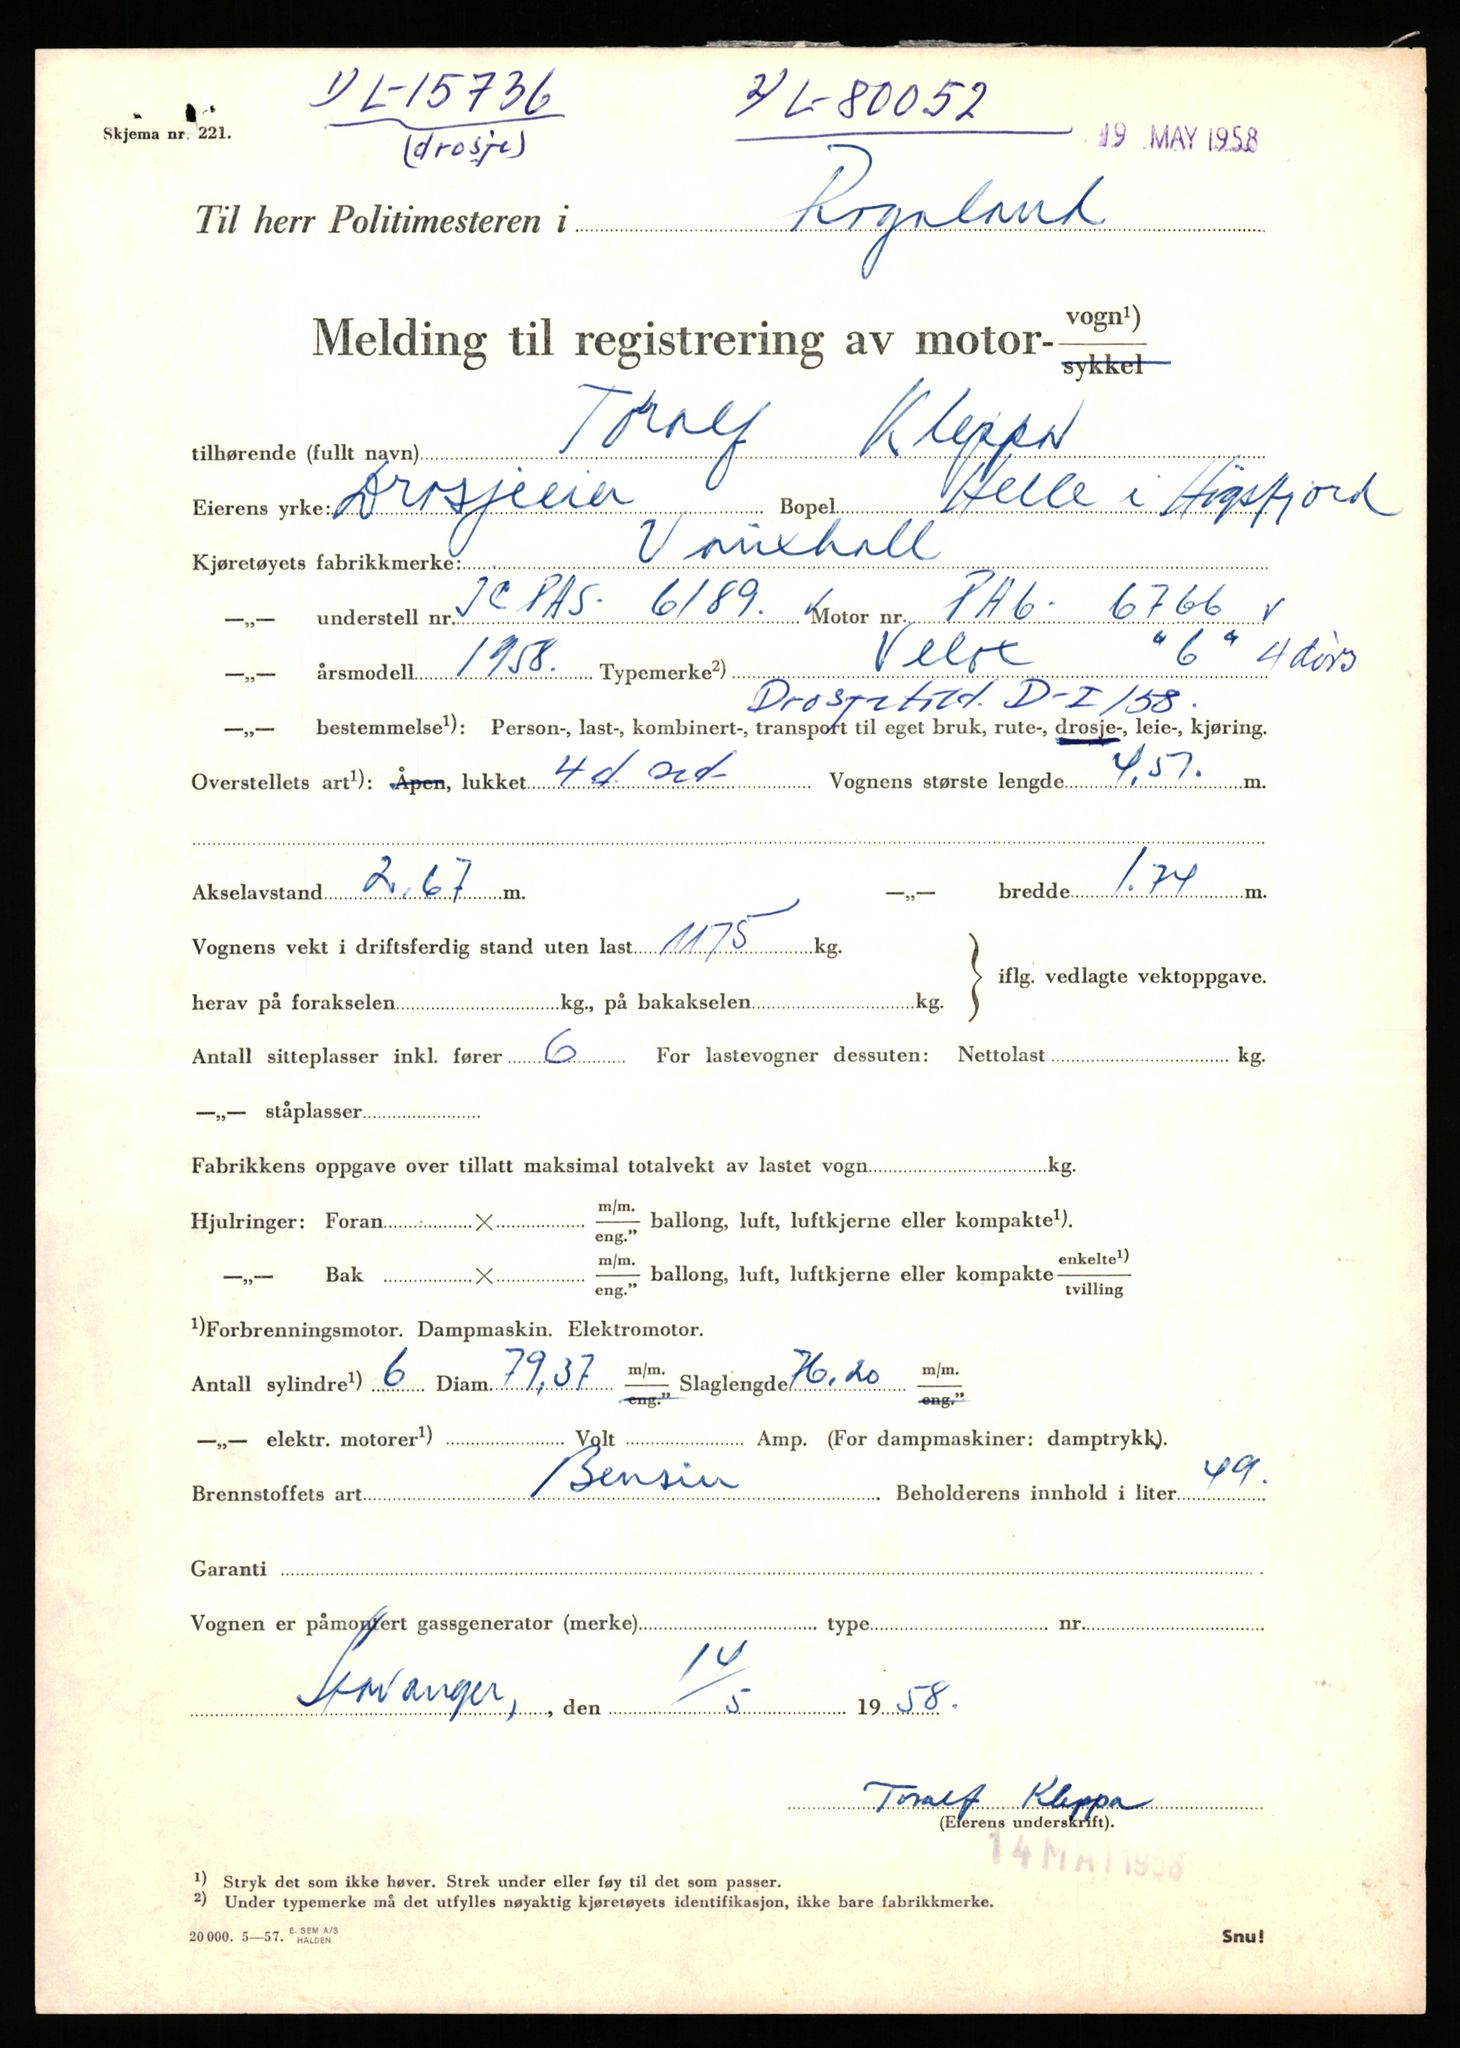 1) L-15736 2) L-80052
Skjema nr. 221. (drosje) 19 MAY 1958
Til herr Politimesteren i Rogaland
Melding til registrering av motor- vogn¹)
sykkel
tilhørende (fullt navn) Toralf Kleppa
Eierens yrke: Drosjeeier Bopel Helle i Høgsfjord
Kjøretøyets fabrikkmerke: Vauxhall
—„— understell nr. PAS. 6189. Motor nr. PA6. 6766 v
—„— årsmodell 1958. Typemerke²) Velox "6" 4 dørs
Drosjetill. D-I/58.
—„— bestemmelse¹): Person-, last-, kombinert-, transport til eget bruk, rute-, drosje-, leie-, kjøring.
Overstellets art¹): Åpen, lukket 4 d. sed. Vognens største lengde 4,51. m.
Akselavstand 2.67 m. —„— bredde 1.74 m.
Vognens vekt i driftsferdig stand uten last 1175 kg.
iflg. vedlagte vektoppgave.
herav på forakselen kg., på bakakselen kg.
Antall sitteplasser inkl. fører 6 For lastevogner dessuten: Nettolast kg.
—„— ståplasser
Fabrikkens oppgave over tillatt maksimal totalvekt av lastet vogn kg.
Hjulringer: Foran × m/m. eng.” ballong, luft, luftkjerne eller kompakte¹).
—„— Bak × m/m. eng.” ballong, luft, luftkjerne eller kompakte enkelte¹) tvilling
¹)Forbrenningsmotor. Dampmaskin. Elektromotor.
Antall sylindre¹) 6 Diam. 79,37 m/m. eng.” Slaglengde 76.20 m/m. eng.”
—„— elektr. motorer¹) Volt Amp. (For dampmaskiner: damptrykk).
Brennstoffets art Bensin Beholderens innhold i liter 49.
Garanti
Vognen er påmontert gassgenerator (merke) type nr.
Stavanger, , den 14/5 1958.
Toralf Kleppa
(Eierens underskrift).
14 MAI 1958
¹) Stryk det som ikke høver. Strek under eller føy til det som passer.
²) Under typemerke må det utfylles nøyaktig kjøretøyets identifikasjon, ikke bare fabrikkmerke.
20 000. 5—57. E. SEM A/S HALDEN Snu!